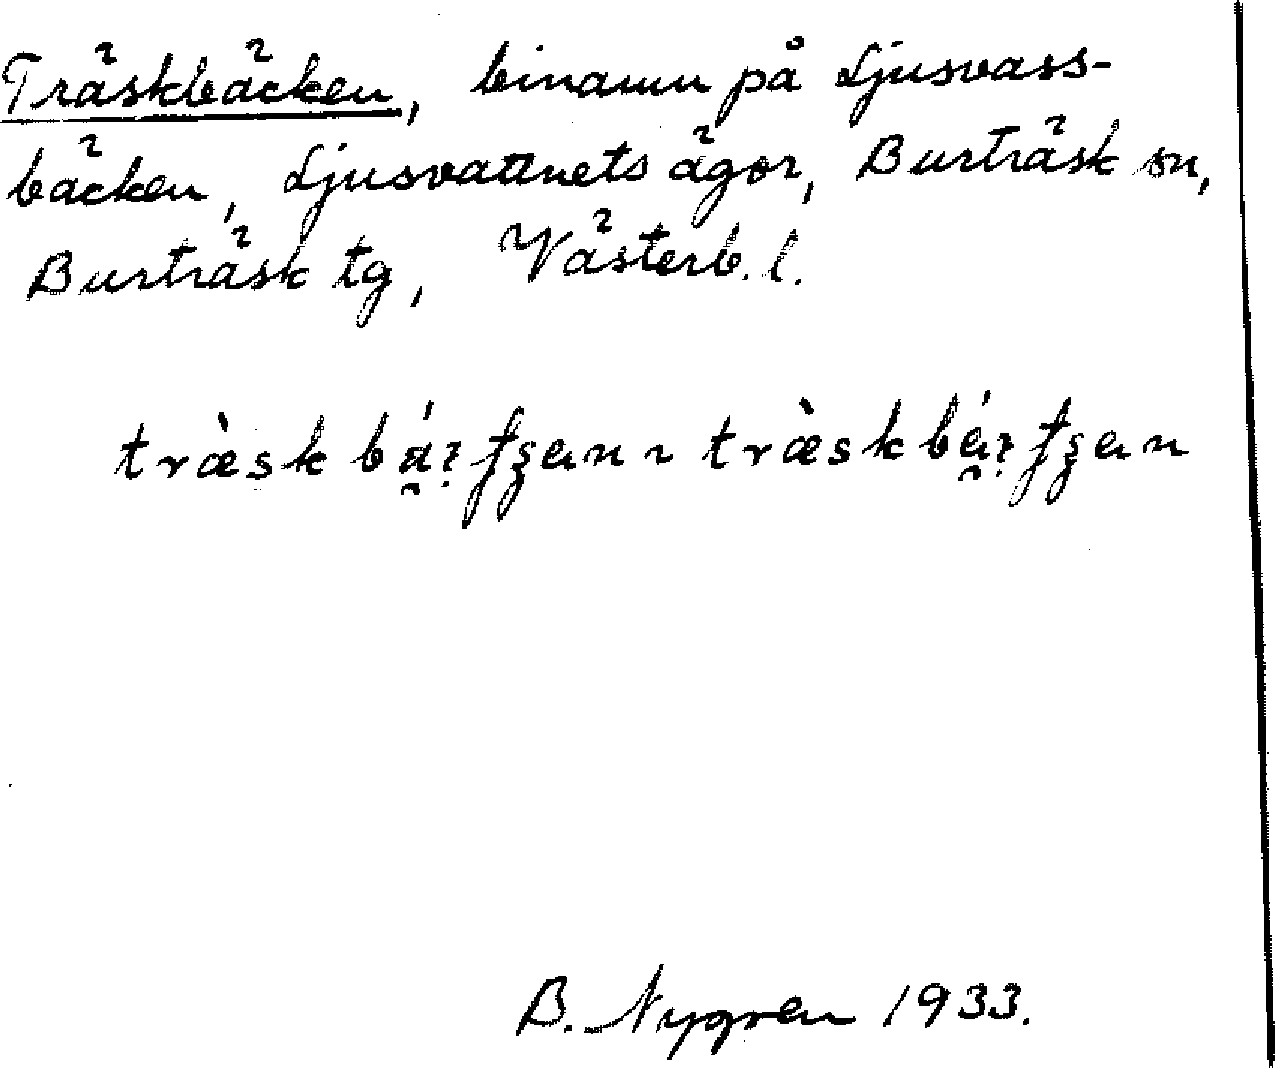 Träskbäcken, binamn på Ljusvass-
bäcken, Ljusvattnets ägor, Burträsk sn,
Burträsk tg, Västerb. l.
B. Nygren 1933.